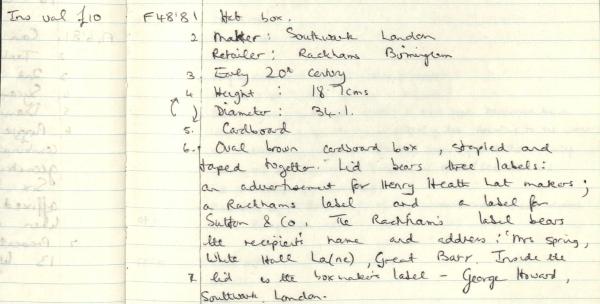 Ins val £10 F48'81 Hat box.
2 Maker: Southwark London
Retailer: Rackhams Birmingham
3 Early 20th century
4 Height: 18.7cms
Diameter: 34.1.
5. Cardboard
6. Oval brown cardboard box, stapled and
taped together. Lid bears three labels:
an advertisement for Henry Heath hat makers;
a Rackhams label and a label for
Sutton & Co. The Rackham's label bears
the recipient's name and address: "Mrs Spring,
White Hall La(ne), Great Barr. Inside the
lid is the boxmaker's label - George Howard,
Southwark, London.